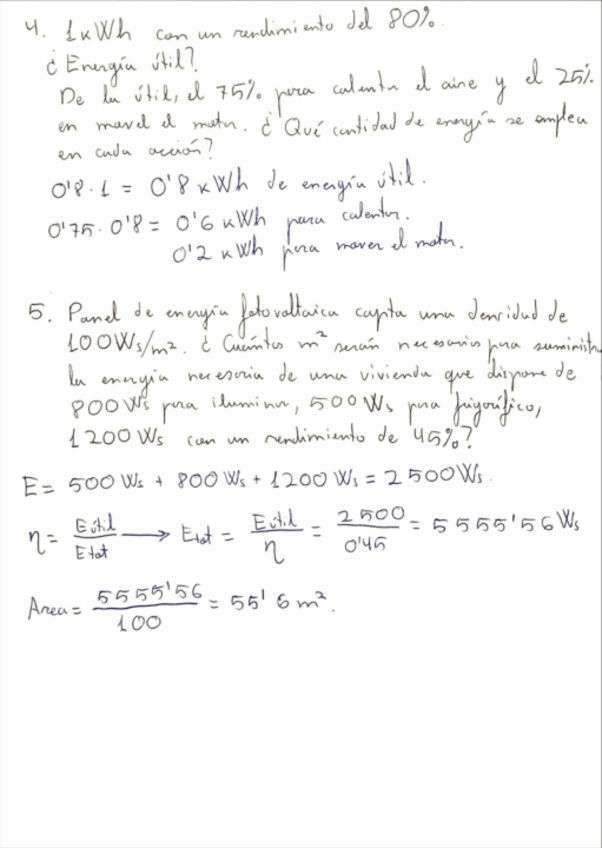 4. 1kWh con un rendimiento del 80%.
¿Energía útil?
De la útil, el 75% para calentar el aire y el 25%
en mover el motor. ¿Qué cantidad de energía se emplea
en cada acción?
0'8·1 = 0'8 kWh de energía útil.
0'75·0'8 = 0'6 kWh para calentar.
0'2 kWh para mover el motor.
5. Panel de energía fotovoltaica capta una densidad de
100Ws/m². ¿Cuántos m² serán necesarios para suministr
la energía necesaria de una vivienda que dispone de
800Ws para iluminar, 500Ws para frigorífico,
1200Ws con un rendimiento de 45%?
E = 500 Ws + 800 Ws + 1200 Ws = 2500 Ws.
η = Eútil/Etot → Etot = Eútil/η = 2500/0'45 = 5555'56 Ws
Area = 5555'56/100 = 55'6 m².